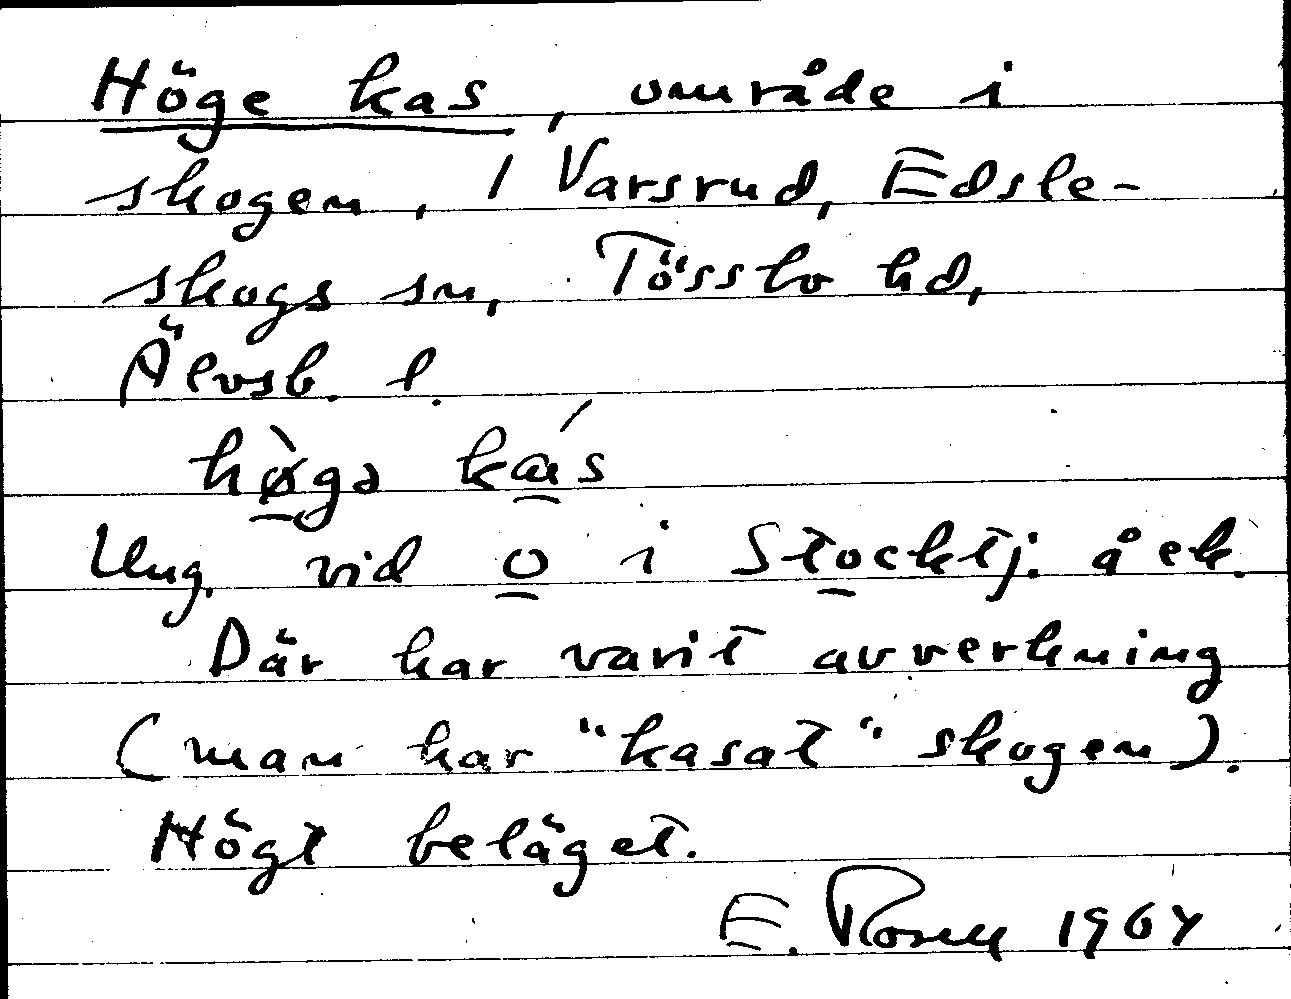 Höge kas, område i
skogen, 1 Varsrud, Edsle-
skogs sn, Tössbo hd,
Älvsb. l.
hø̀gə ka̱s
Ung. vid o̱ i Sto̱cktj. å ek.
Där har varit avverkning
(man har "kasat" skogen).
Högt beläget.
E. Rosell 1964